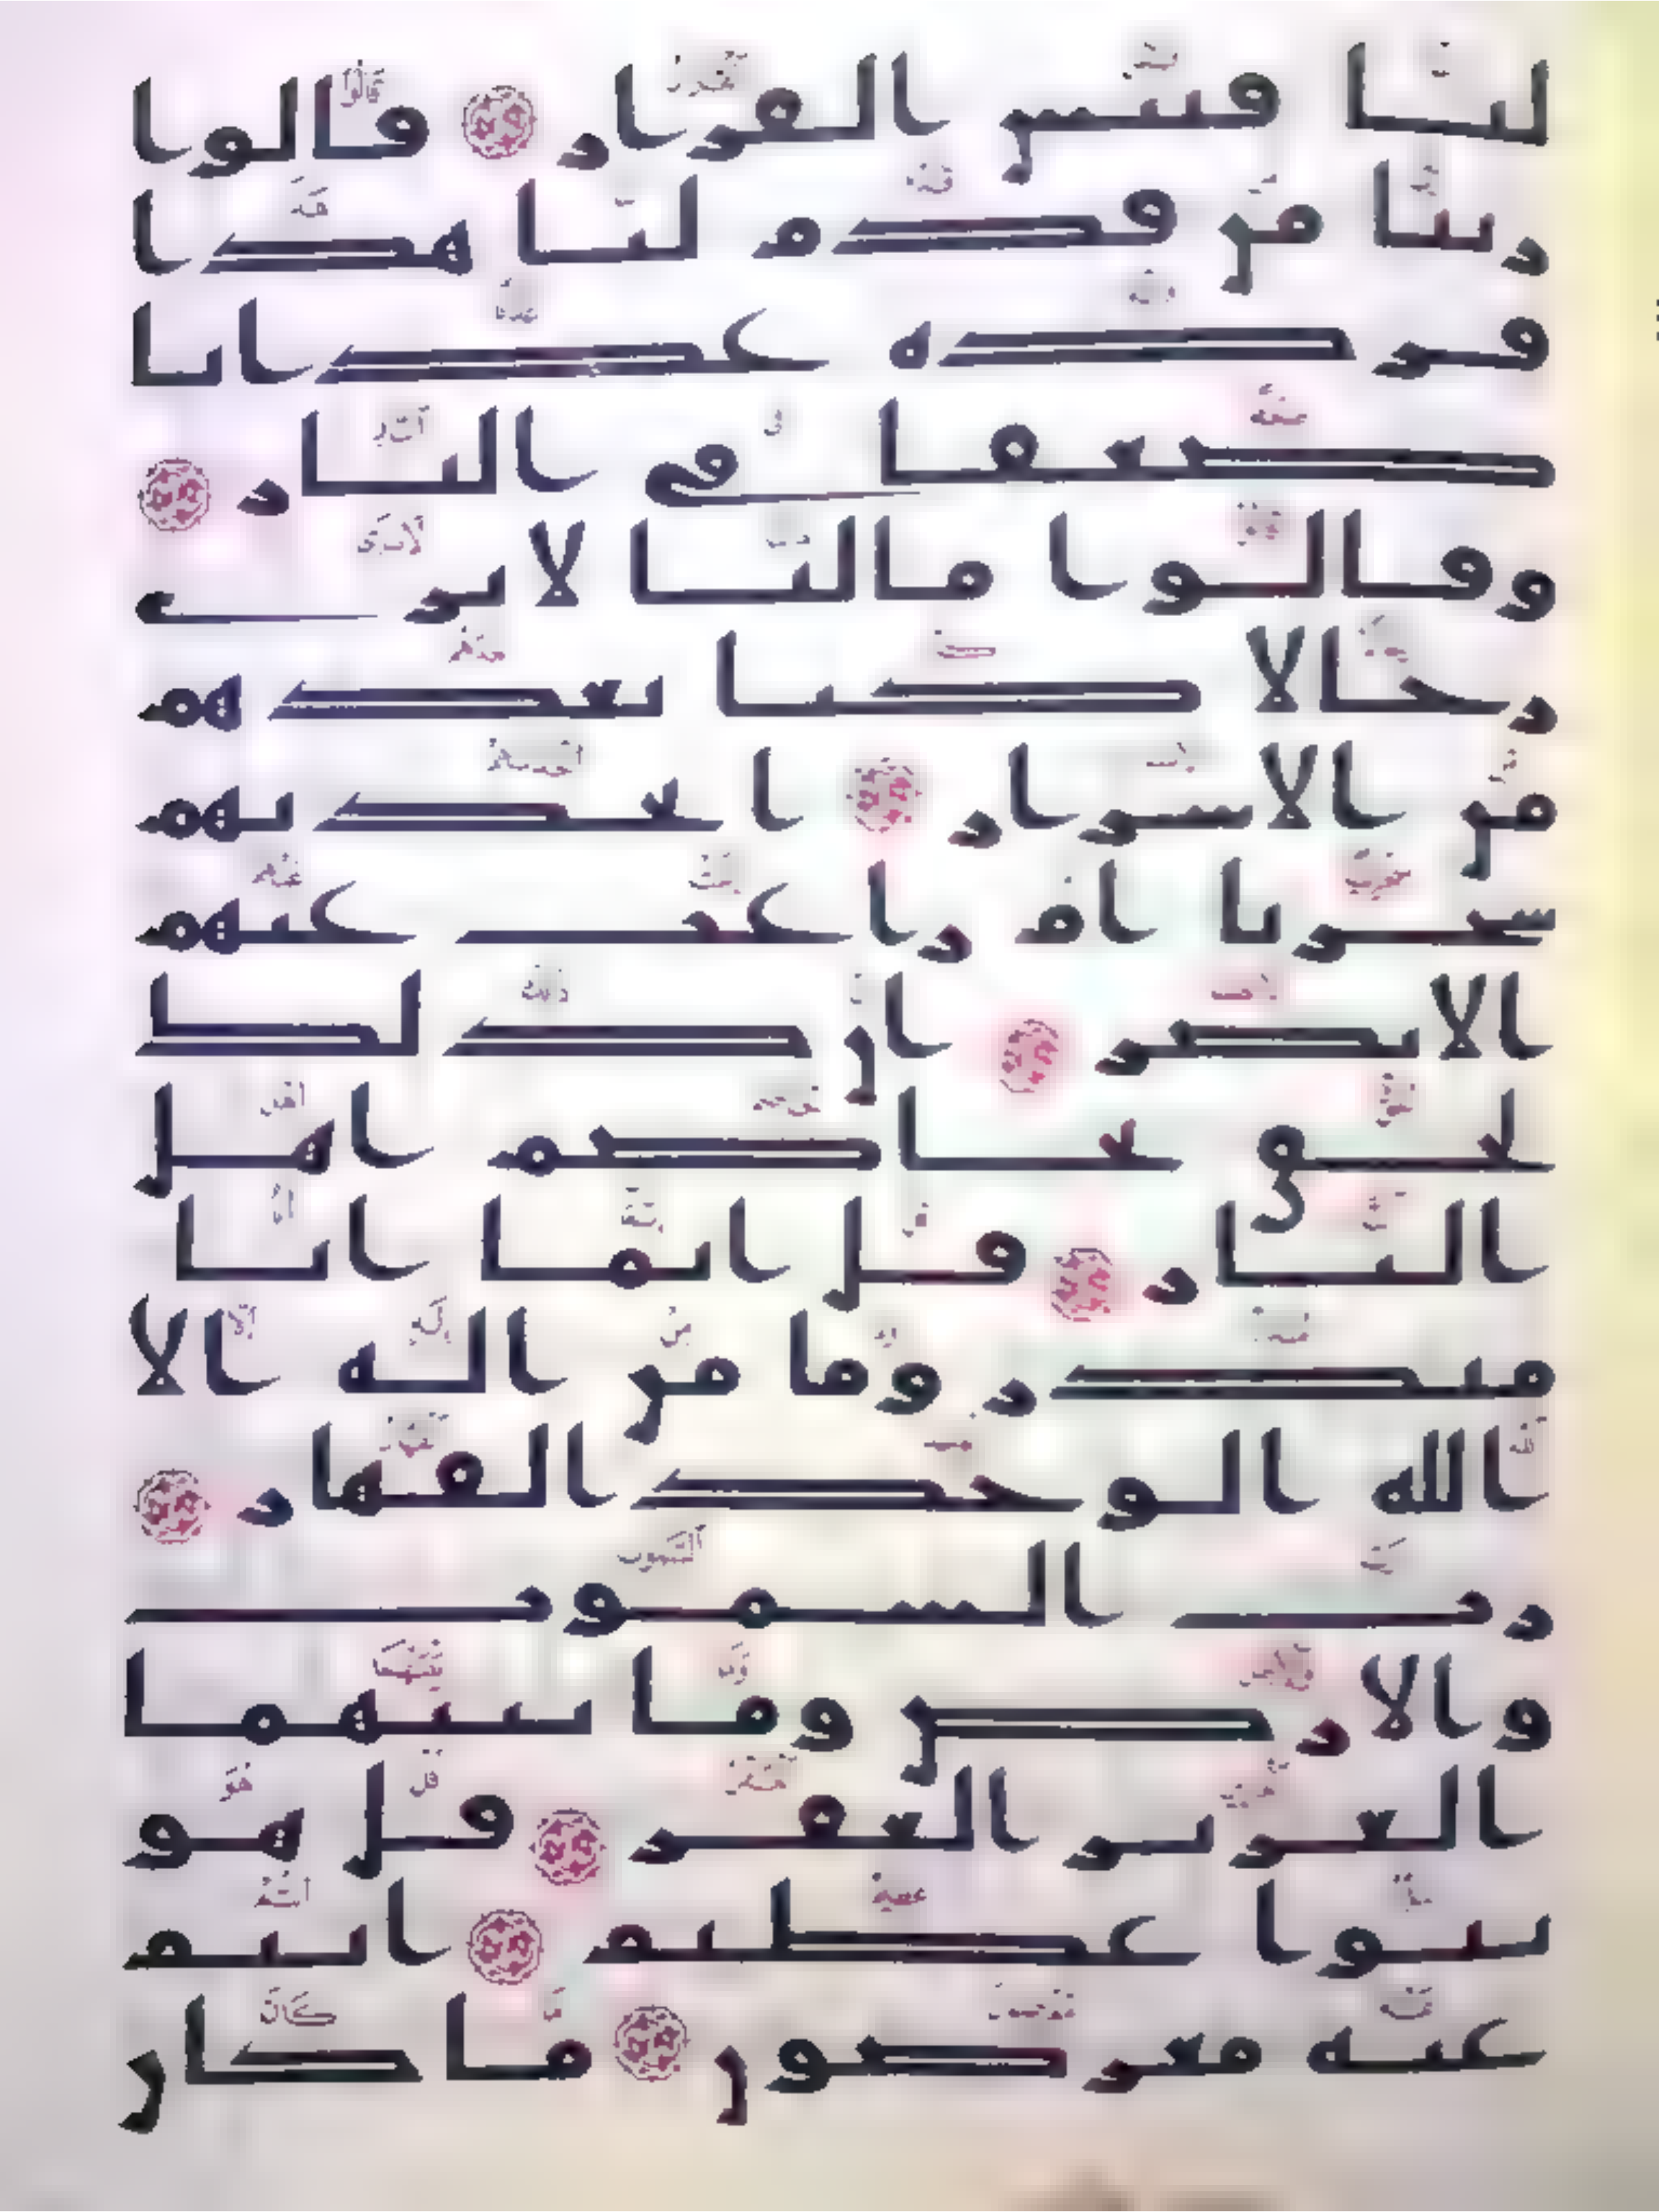 لنا فبئس القرار قالوا
ربنا من قدم لنا هذا
فزده عذابا
ضعفا في النار
وقالوا ما لنا لا نرى
رجالا كنا نعدهم
من الاشرار اتخذنهم
سخريا ام زاغت عنهم
الابصر ان ذلك
لحق تخاصم اهل
النار قل انما انا
منذر وما من اله الا
الله الوحد القهار
رب السموت
والارض وما بينهما
العزيز الغفر قل هو
نبوا عظيم انتم
عنه معرضون ما كان